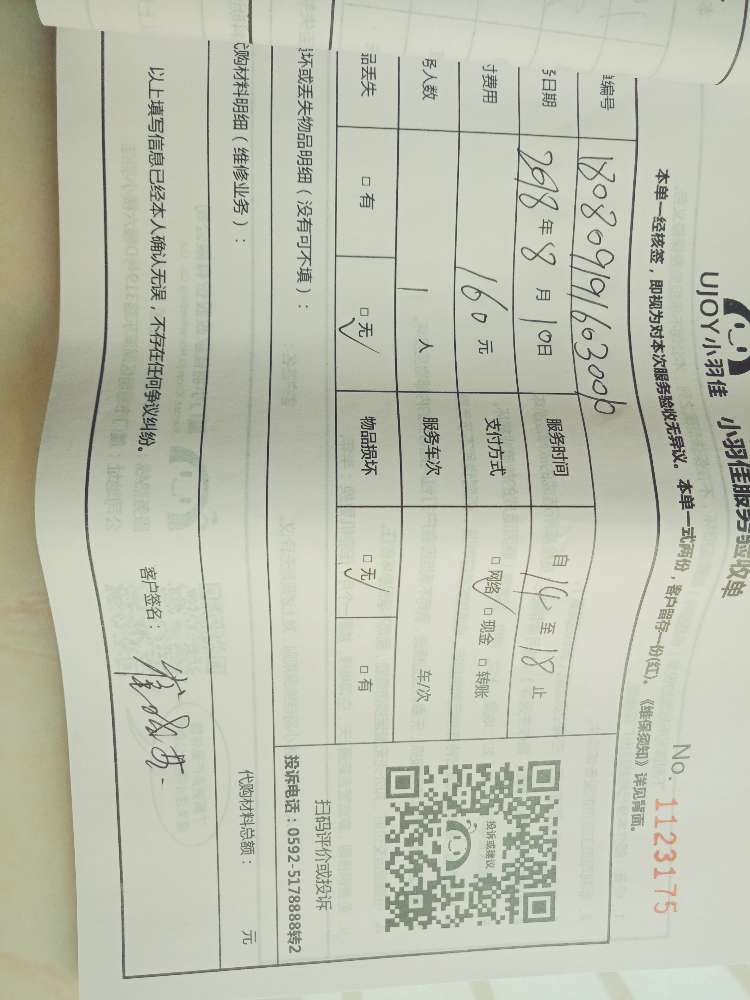 UJOY小羽佳 小羽佳服务验收单
No. 1123175
本单一经核签，即视为对本次服务验收无异议。本单一式两份，客户留存一份(红)。《维保须知》详见背面。
编号
日期 2018年8月10日 服务时间 自14至18止
付费用 160元 支付方式 □网络 □现金 □转账
务人数 1人 服务车次 车/次
品丢失 □有 □无 物品损坏 □无 □有
坏或丢失物品明细（没有可不填）：
投诉或建议
扫码评价或投诉
投诉电话：0592-5178888转2
购材料明细（维修业务）：
代购材料总额： 元
以上填写信息已经本人确认无误，不存在任何争议纠纷。 客户签名：